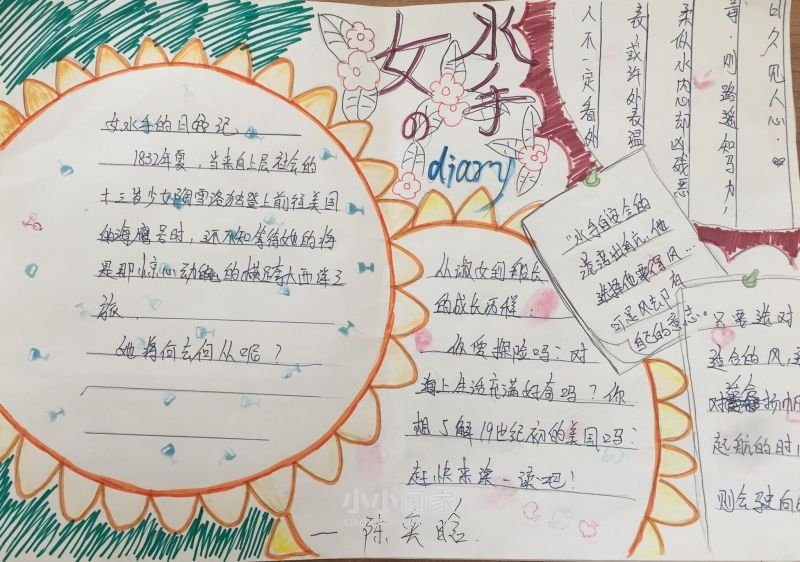 女水手の
diary
女水手的日记
1832年夏，当来自上层社会的
十三岁少女雪洛狄登上前往美国
的海鹰号时，还不知等待她的将
是那惊心动魄的横跨大西洋之
旅
她将何去何从呢？
从淑女到船长
的成长历程：
你爱探险吗？对
海上生活充满好奇吗？你
想了解19世纪初的美国吗？
赶快来读一读吧！
日久见人心
毒，则路遥知马力，
柔似水内心却凶残恶
表，或许外表温
人不一定看外
"水手自安全的
港湾出航，他
选择他要得风…
可是风也门有
自己的意志"
只要选对
适合的风，
对 扬帆
起航的时
则会驶向
一 陈
小小画家